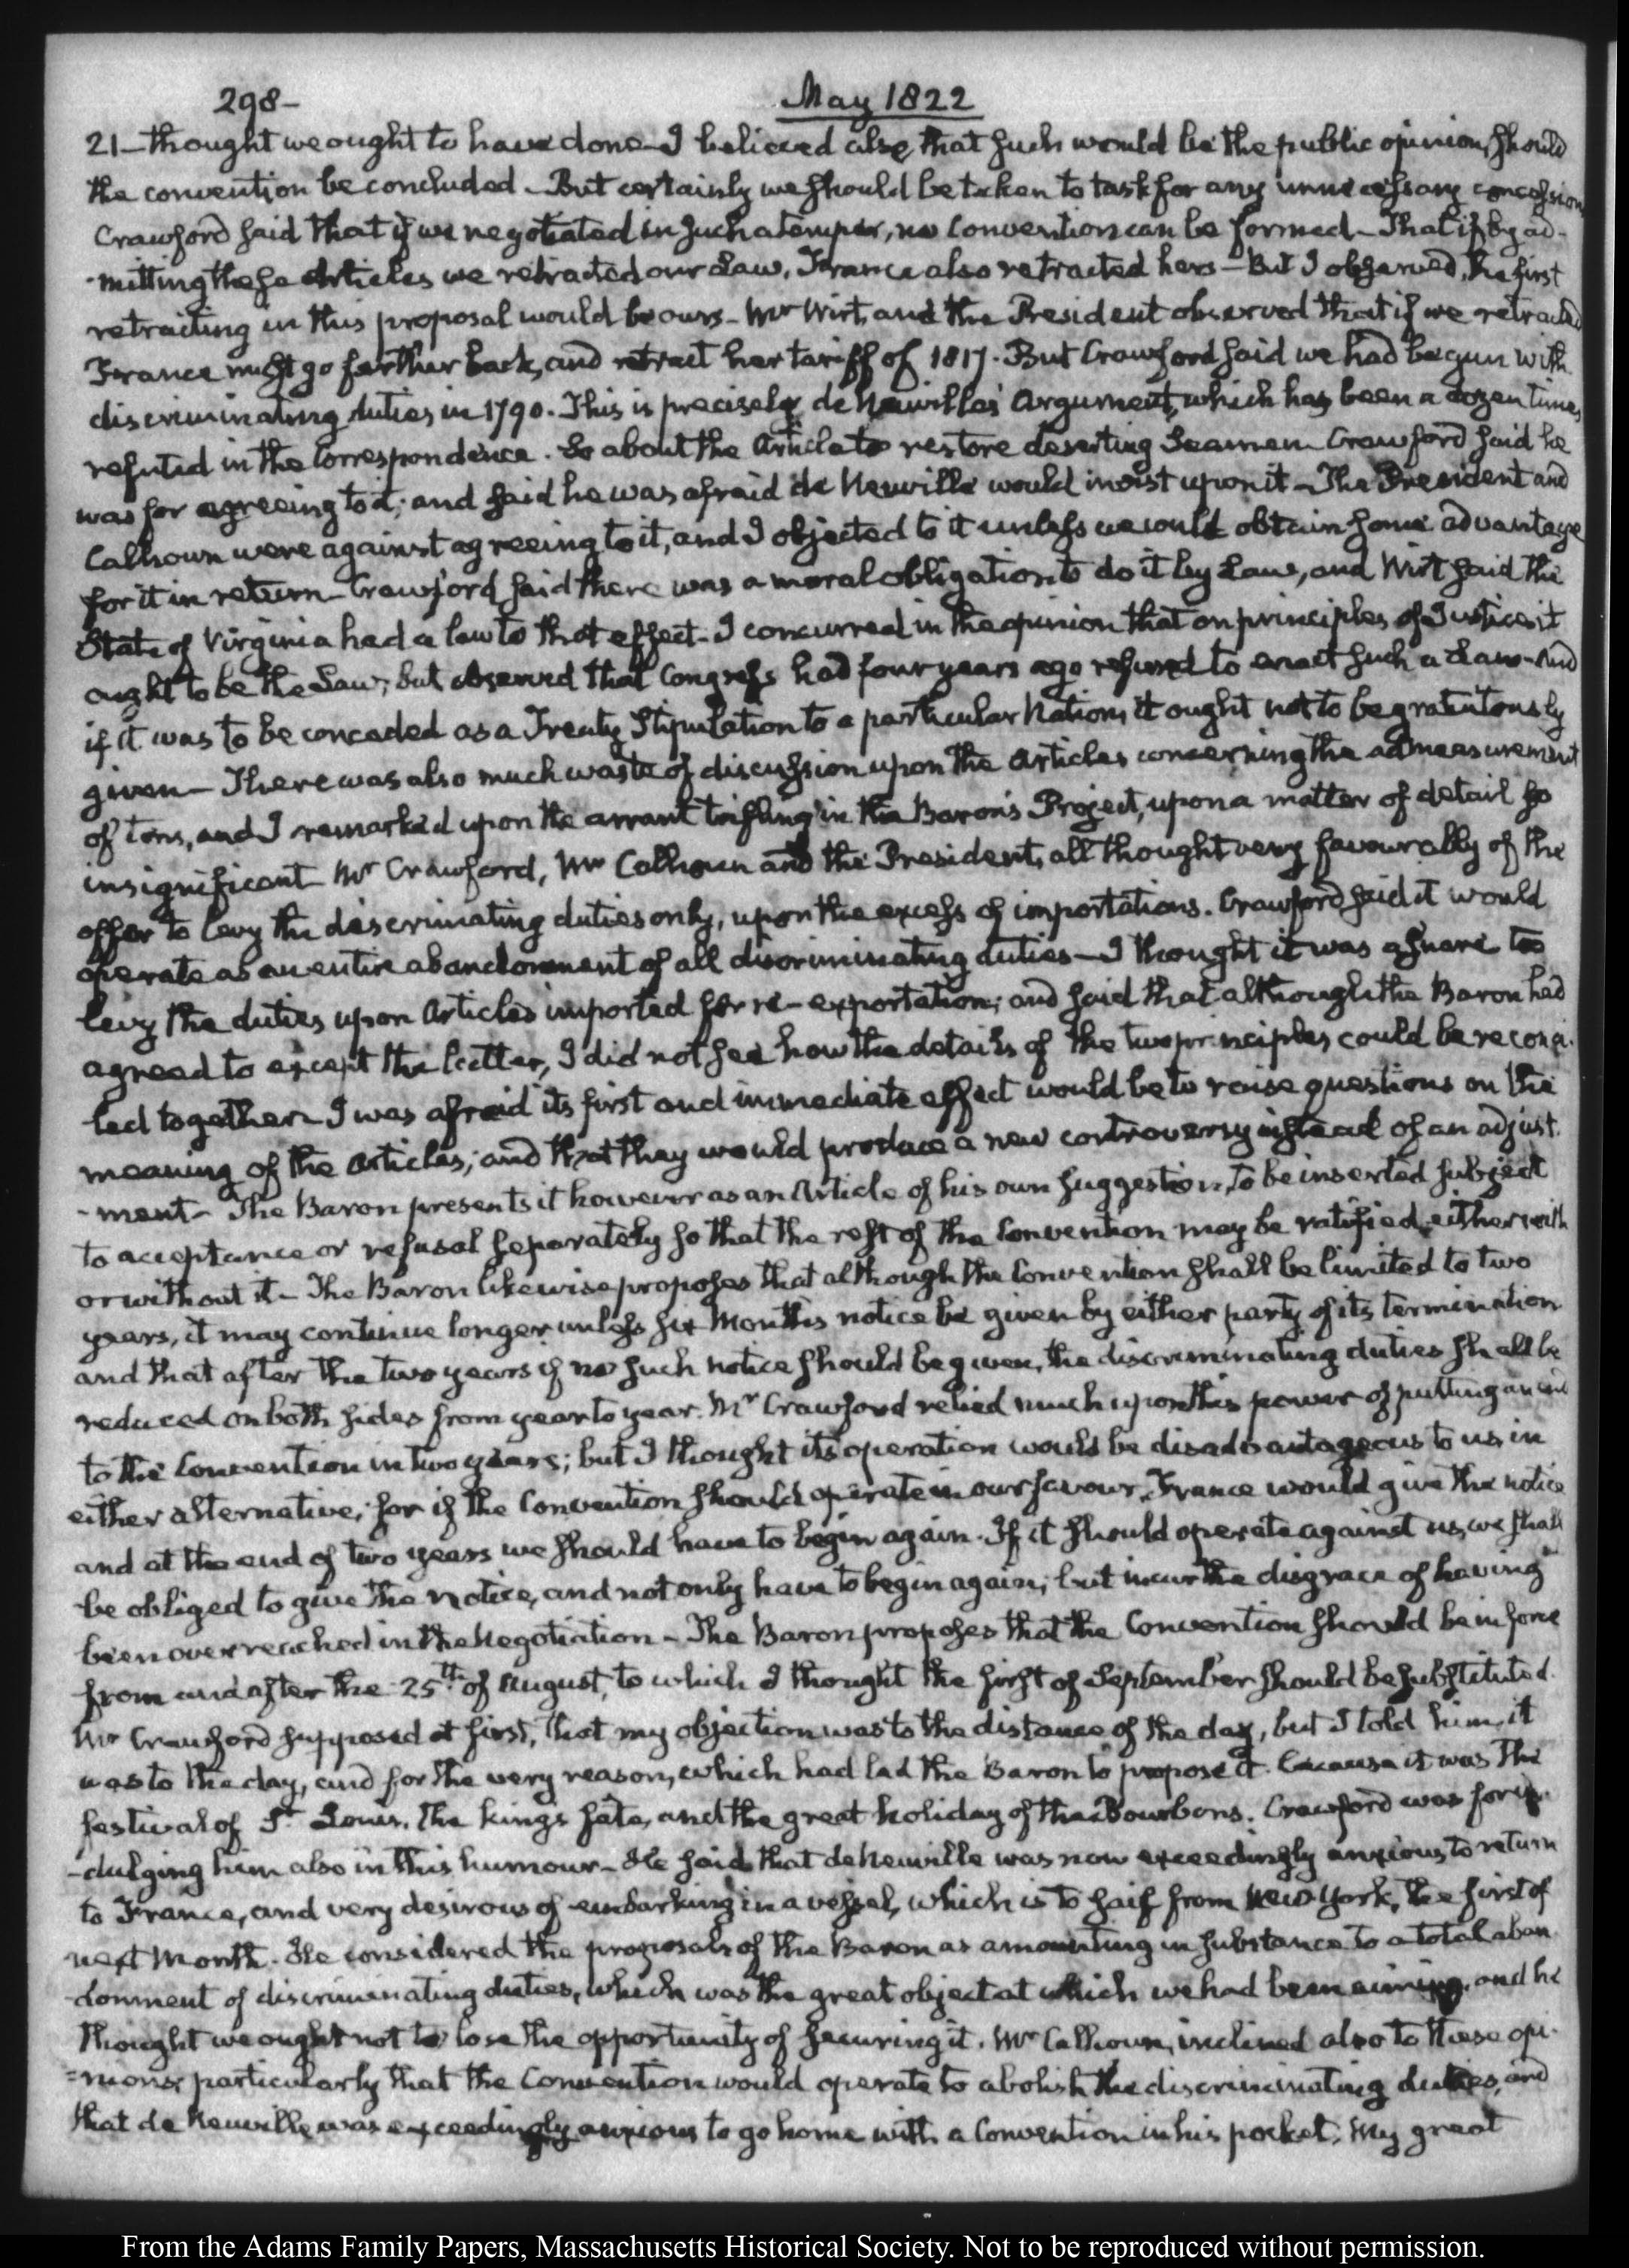 298-
May 1822
21- thought we ought to have done- I believed also, that such would be the public opinion, should
the convention be concluded- But certainly we should be taken to task for any unnecessary concession
Crawford said that if we negotiated in such a temper, no Convention can be formed- That if by ad-
-mitting these Articles we retracted our Law, France also retracted hers- But I observed, the first
retracting in this proposal would be ours- Mr Wirt, and the President observed that if we retracted
France must go farther back, and retract her tariff of 1817. But Crawford said we had begun with
discriminating duties in 1790. This is precisely de Neuville's Argument, which has been a dozen times
refuted in the Correspondence. So about the Article to restore deserting Seamen Crawford said he
was for agreeing to it; and said he was afraid de Neuville would insist upon it- The President and
Calhoun were against agreeing to it, and I objected to it unless we could obtain some advantage
for it in return- Crawford said there was a moral obligation to do it by Law, and Wirt said the
State of Virginia had a law to that effect- I concurred in the opinion that on principles of Justice it
ought to be the Law; but observed that Congress had four years ago refused to enact such a Law- And
if it was to be conceded as a Treaty Stipulation to a particular Nation, it ought not to be gratuitously
given- There was also much waste of discussion upon the Articles concerning the admeasurement
of tons, and I remarked upon the arrant trifling in the Baron's Project, upon a matter of detail so
insignificant- Mr Crawford, Mr Calhoun and the President, all thought very favourably of the
offer to levy the discriminating duties only, upon the excess of importations. Crawford said it would
operate as an entire abandonment of all discriminating duties- I thought it was a snare to
levy the duties upon Articles imported for re-exportation; and said that although the Baron had
agreed to except the latter, I did not see how the details of the two principles could be reconci-
led together- I was afraid its first and immediate effect would be to raise questions on the
meaning of the Articles; and that they would produce a new controversy instead of an adjust-
-ment- The Baron presents it however as an Article of his own suggestion, to be inserted subject
to acceptance or refusal separately so that the rest of the Convention may be ratified either with
or without it- The Baron likewise proposes that although the Convention shall be limited to two
years, it may continue longer unless six Months notice be given by either party of its termination
and that after the two years if no such notice should be given, the discriminating duties shall be
reduced on both sides from year to year. Mr Crawford relied much upon this power of putting an end
to the Convention in two years; but I thought its operation would be disadvantageous to us in
either alternative; for if the Convention should operate in our favour, France would give the notice
and at the end of two years we should have to begin again. If it should operate against us, we shall
be obliged to give the notice, and not only have to begin again; but incur the disgrace of having
been overreached in the Negotiation- The Baron proposes that the Convention should be in force
from and after the 25th of August, to which I thought the first of September should be substituted.
Mr Crawford supposed at first, that my objection was to the distance of the day, but I told him, it
was to the day, and for the very reason, which had led the Baron to propose it. Because it was the
festival of St. Louis, the kings fête, and the great holiday of the Bourbons. Crawford was for in-
-dulging him also in this humour- He said that de Neuville was now exceedingly anxious to return
to France, and very desirous of embarking in a vessel, which is to sail from New York, the first of
next Month. He considered the proposals of the Baron as amounting in substance to a total aban-
-donment of discriminating duties, which was the great object at which we had been aiming, and he
thought we ought not to lose the opportunity of securing it. Mr Calhoun, inclined also to these opi-
=nions, particularly that the Convention would operate to abolish the discriminating duties, and
that de Neuville was exceedingly anxious to go home with a Convention in his pocket. My great
From the Adams Family Papers, Massachusetts Historical Society. Not to be reproduced without permission.